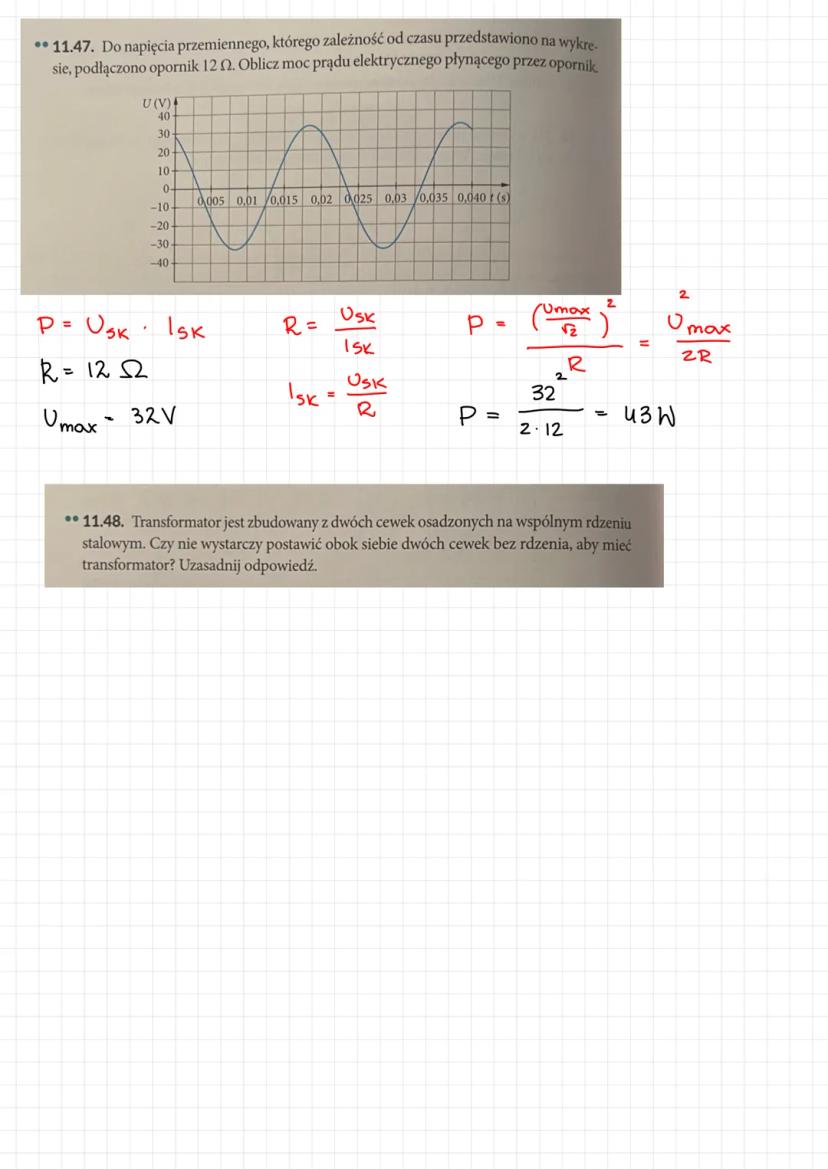 •• 11.47. Do napięcia przemiennego, którego zależność od czasu przedstawiono na wykre-
sie, podłączono opornik 12 Ω. Oblicz moc prądu elektrycznego płynącego przez opornik.
U (V)
40
30
20
10
0
0,005 0,01 0,015 0,02 0,025 0,03 0,035 0,040 t (s)
-10
-20
-30
-40
P = Usk · Isk
R = Usk / Isk
P = (Umax / √2)² / R = U²max / 2R
R = 12 Ω
Isk = Usk / R
Umax - 32V
P = 32² / 2·12 = 43 W
•• 11.48. Transformator jest zbudowany z dwóch cewek osadzonych na wspólnym rdzeniu
stalowym. Czy nie wystarczy postawić obok siebie dwóch cewek bez rdzenia, aby mieć
transformator? Uzasadnij odpowiedź.